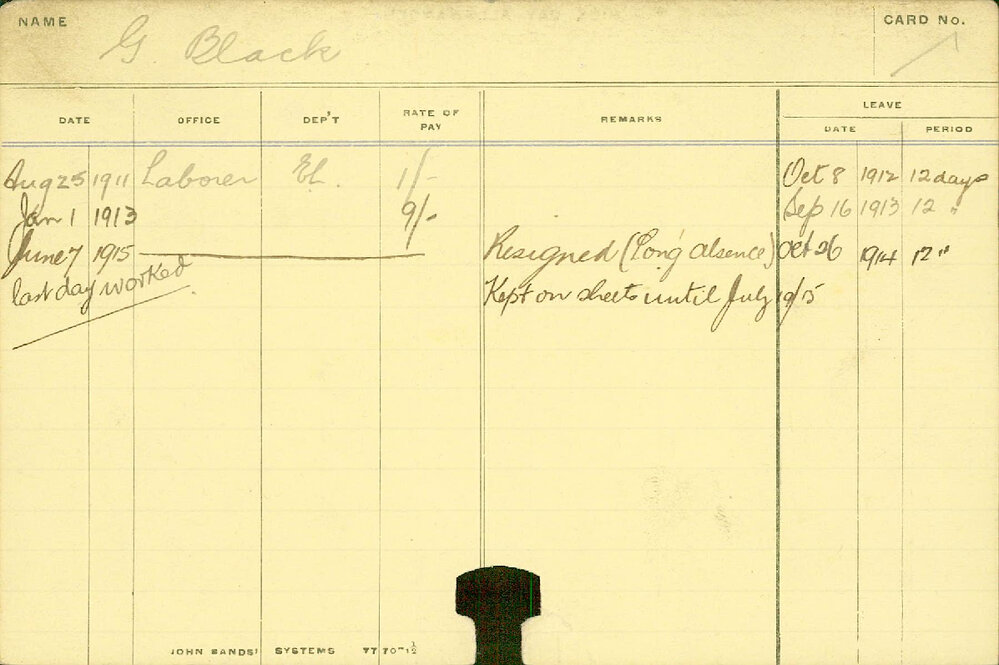 NAME G. Black CARD No.
LEAVE
DATE OFFICE DEP'T RATE OF PAY REMARKS DATE PERIOD
Aug 25 1911 Laborer El. 1/- Oct 8 1912 12 days
Jan 1 1913 9/- Sep 16 1913 12 "
June 7 1915 Resigned (Long absence) Oct 26 1914 12 "
last day worked Kept on sheets until July 19/15
JOHN SANDS' SYSTEMS